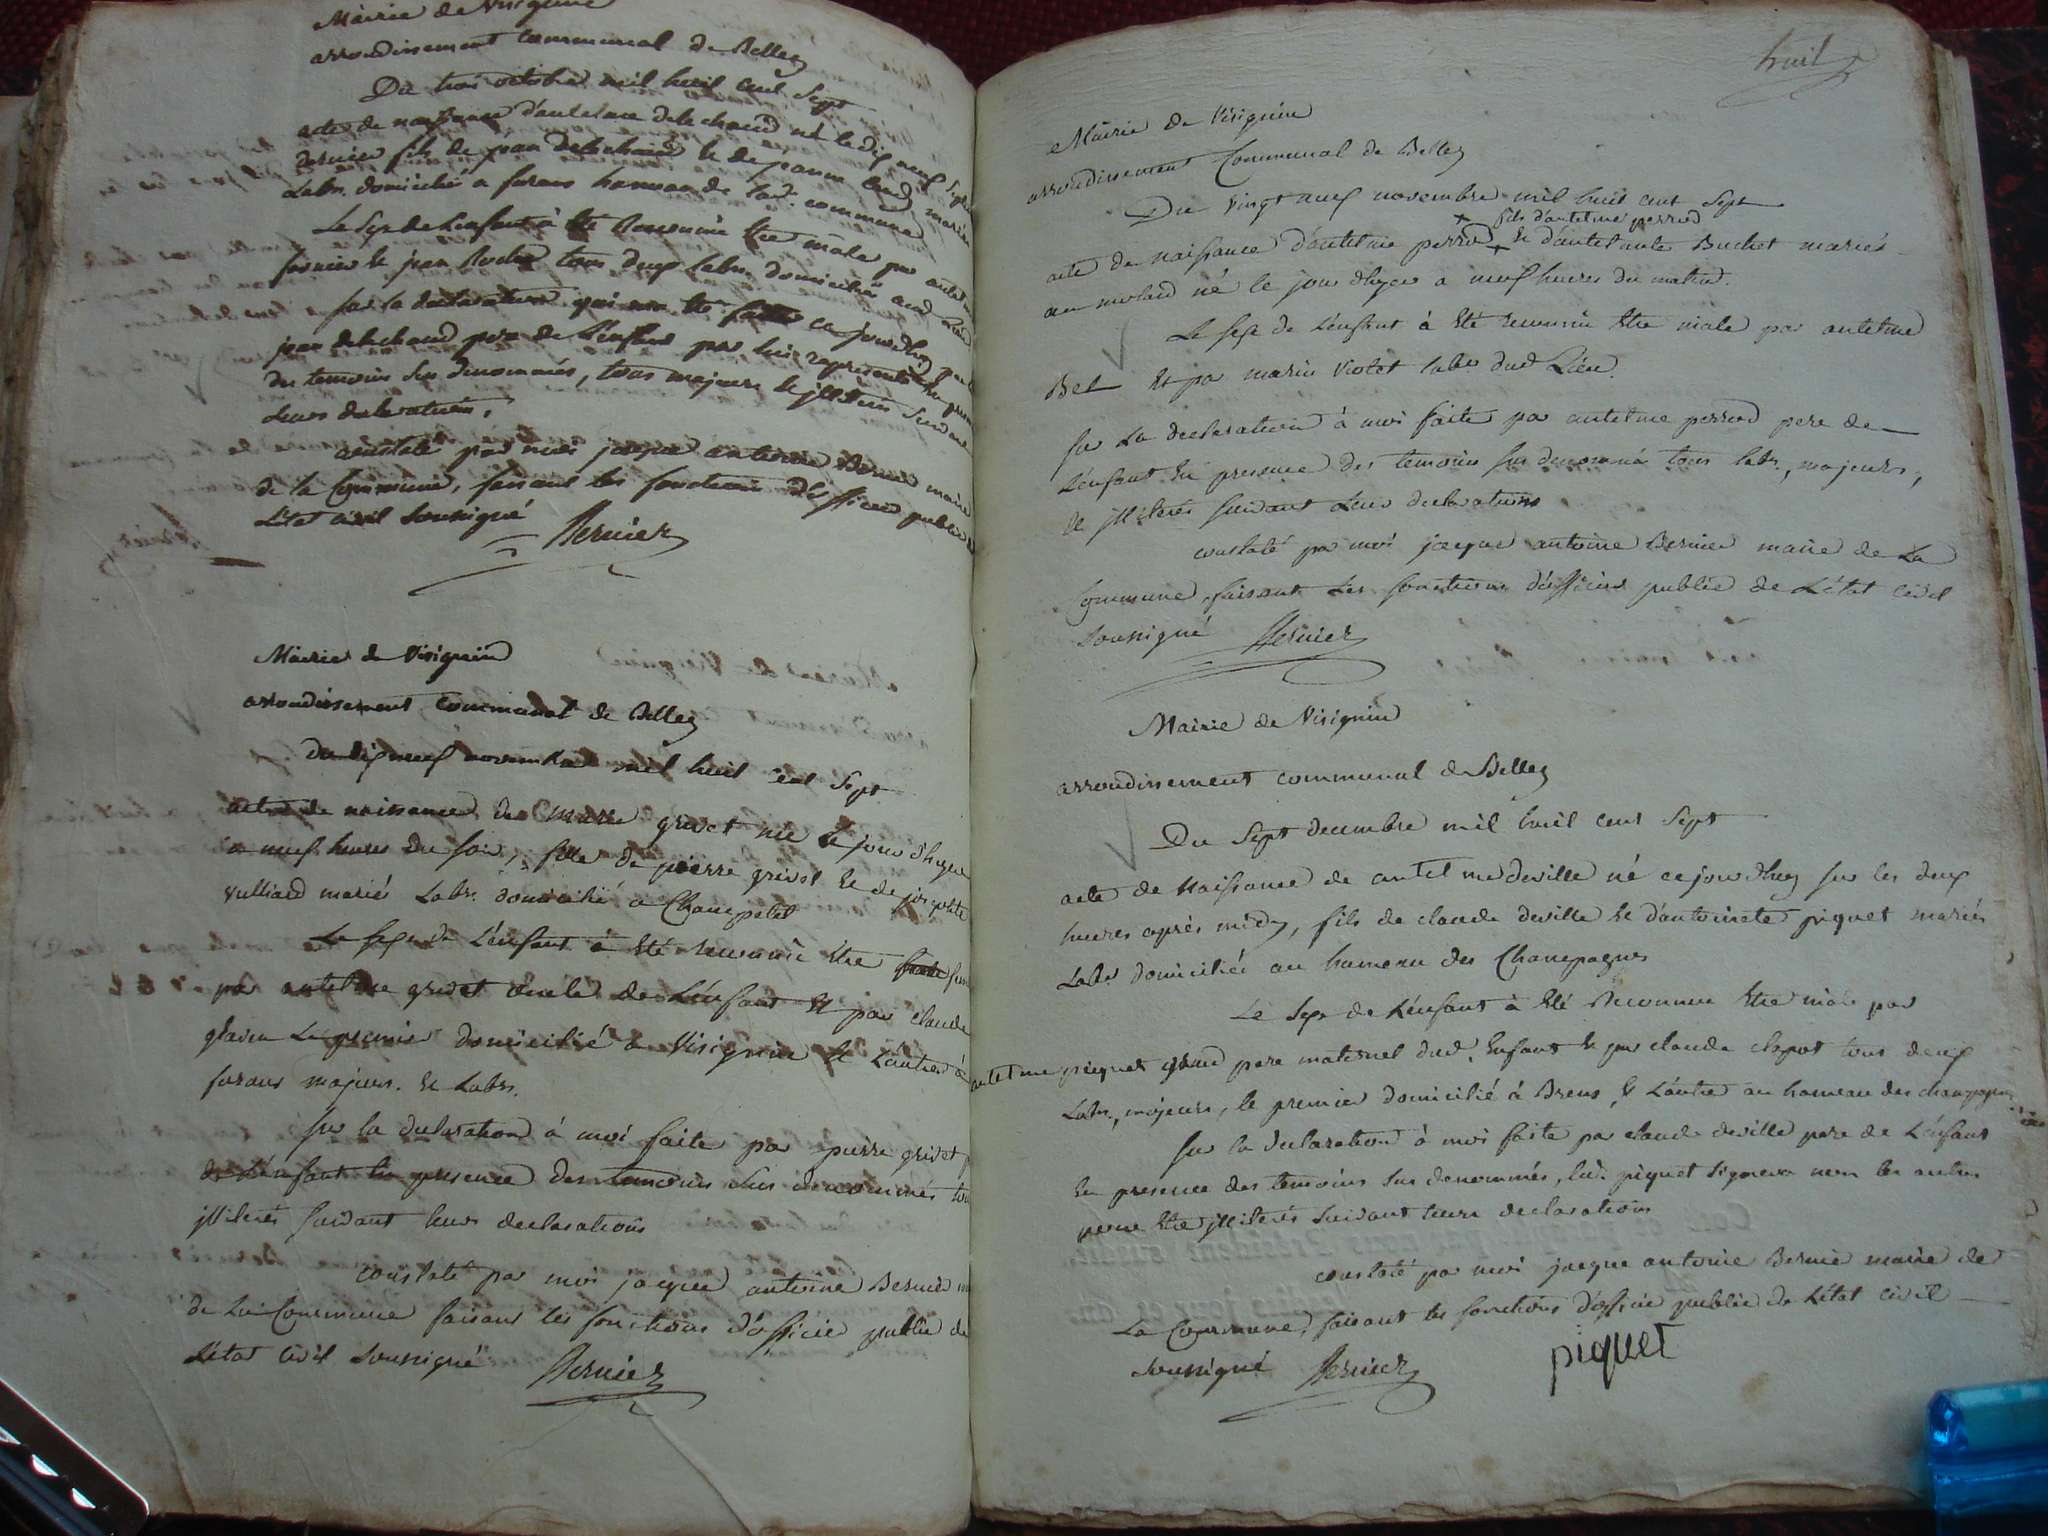 Mairie de Virignin
arrondissement communal de Belley
Du trois octobre mil huit cent Sept
acte de naissance d'antelme delechaud né le dix neuf
dernier fils de jean delechaud et de mariés
Labr. domicilié a furans hameau de lad. commune
Le Sexe de L'enfant à été reconnu être mâle par
et jean tous deux Labr. domiciliés aud
sur la declaration qui m'a été faitte ce jourdhuy
jean delechaud pere de L'enfant par lui représenté
des temoins sus denommés, tous majeurs et illiterés suivant
Leurs declarations.
constaté par moi jacque antoine Bernier maire
de la Commune, faisant les fonctions d'officier public
L'état civil soussigné Bernier
Mairie de Virignin
arrondissement communal de Belley
du dix neuf novembre mil huit cent Sept
acte de naissance de marie grivet née le jour d'hyer
a neuf heures du soir, fille de pierre grivet et de josephte
vulliard mariés Labr. domicilié a Champetel
Le Sexe de L'enfant à été reconnu être
par antelme grivet oncle de L'enfant et par claude
Le premier domicilié a Virignin et L'autre à
furans majeurs. et Labr.
sur la declaration à moi faite par pierre grivet
de L'enfant en presence des temoins sus denommés
illiterés suivant leurs declarations
constaté par moi jacque antoine Bernier
de la Commune faisant les fonctions d'officier public de
L'état civil soussigné Bernier
huit
Mairie de Virignin
arrondissement Communal de Belley
Du vingt neuf novembre mil huit cent Sept
fils d'antelme perrod
acte de naissance d'antelme perrod et d'antelmete Buchet mariés
au molard né le jour dhyer a neuf heures du matin.
Le sexe de L'enfant à été reconnu être male par antelme
Bel et par marin violet labr dud Lieu.
sur La declaration à moi faite par antelme perrod pere de
L'enfant en presence des temoins sus denommé tous labr, majeurs,
et illiterés suivant Leurs declarations
constaté par moi jacque antoine Bernier maire de La
Commune, faisant Les fonctions d'officier public de L'état civil
soussigné Bernier
Mairie de Virignin
arrondissement communal de Belley
Du Sept decembre mil huit cent Sept
acte de Naissance de antelme deville né cejourdhuy sur les deux
heures après midy, fils de claude deville et d'antoinete piquet mariés
Labr domiciliés au hameau des Champagnes
Le Sexe de L'enfant à été Reconnu être mâle par
antelme piquet grand pere maternel dud. Enfant et par claude tous deux
Labr., majeurs, le premier domicilié à Brens, et L'autre au hameau des champagnes
sur la declaration à moi faite par claude deville pere de L'enfant
en presence des temoins sus denommés, led. piquet signera non les autres
pour être illiterés suivant leurs declarations
constaté par moi jacque antoine Bernier maire de
La Commune, faisant les fonctions d'officier public de L'état civil
soussigné Bernier
piquet